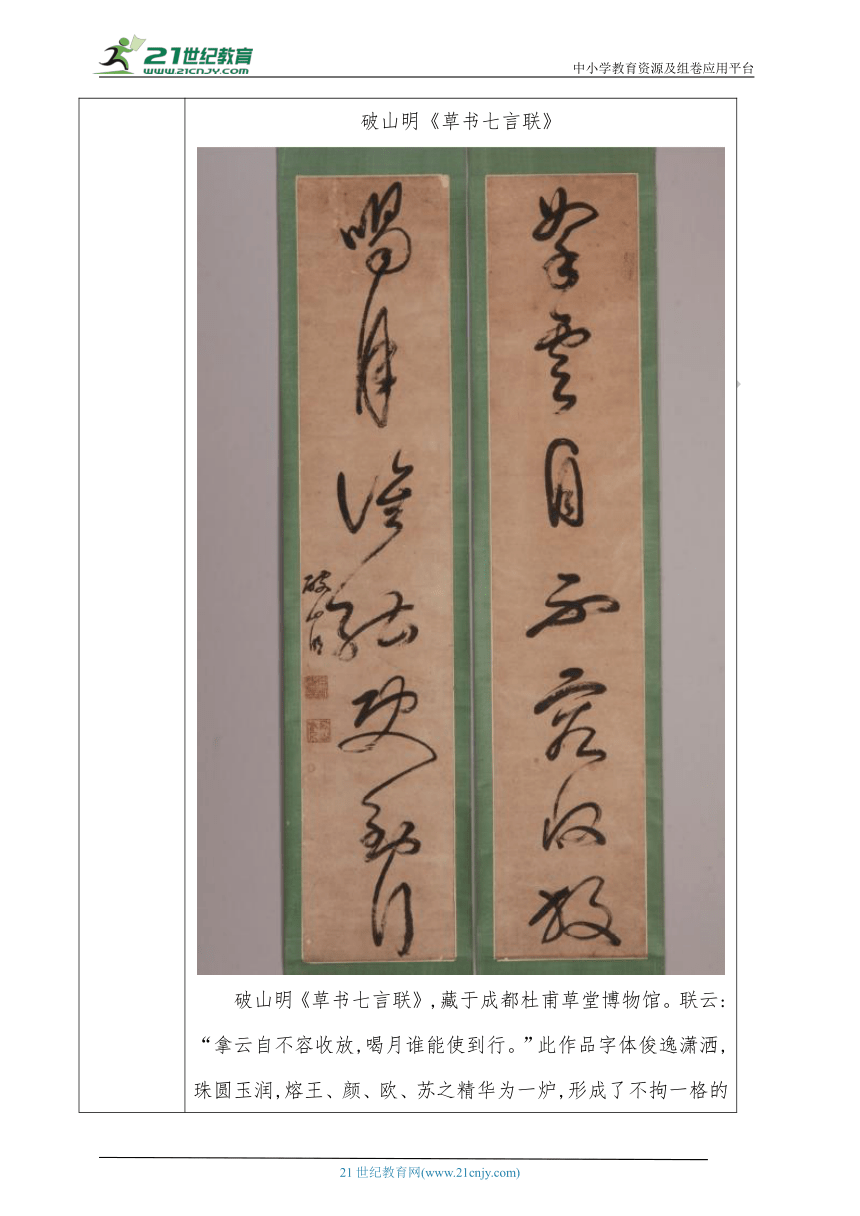 21世纪教育
www.21cnjy.com
中小学教育资源及组卷应用平台
破山明《草书七言联》
拿云自不容收放
喝月谁能使到行
破山明
破山明《草书七言联》,藏于成都杜甫草堂博物馆。联云:
“拿云自不容收放,喝月谁能使到行。”此作品字体俊逸潇洒,
珠圆玉润,熔王、颜、欧、苏之精华为一炉,形成了不拘一格的
21世纪教育网(www.21cnjy.com)